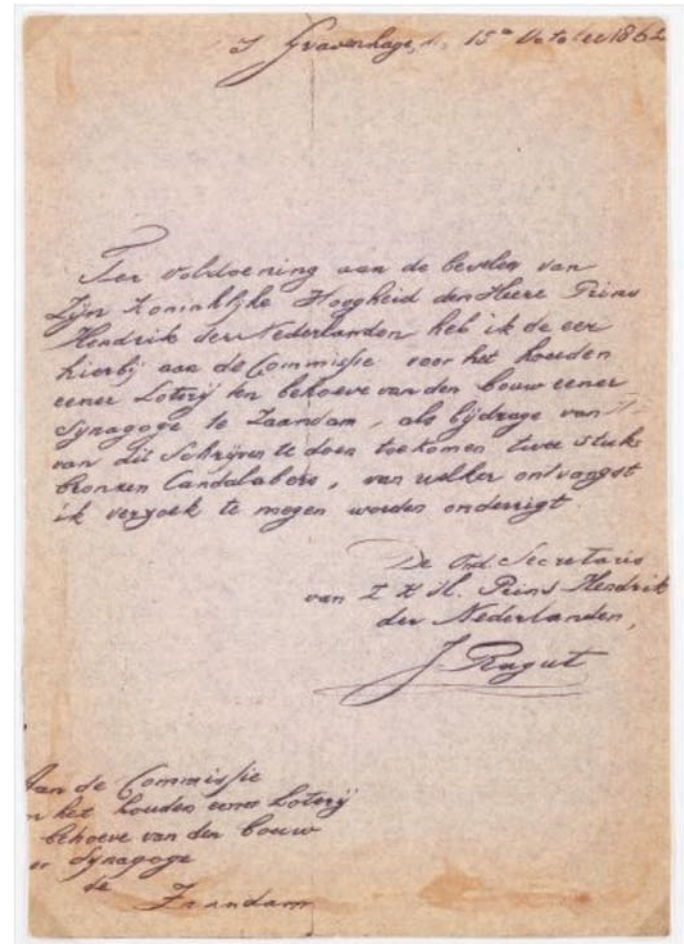 s Gravenhage, d. 15e October 1862
Ter voldoening aan de bevelen van
Zijn Koninklijke Hoogheid den Heere Prins
Hendrik der Nederlanden heb ik de eer
hierbij aan de Commissie voor het houden
eener Loterij ten behoeve van den bouw eener
Synagoge te Zaandam, als bijdrage van
van dit Schrijven te doen toekomen twee stuks
bronzen Candalabers, van welker ontvangst
ik verzoek te mogen worden onderrigt.
De Secretaris
van Z K H. Prins Hendrik
der Nederlanden,
J. Ragut
Aan de Commissie
n het houden eener Loterij
behoeve van den bouw
er Synagoge
te
Zaandam